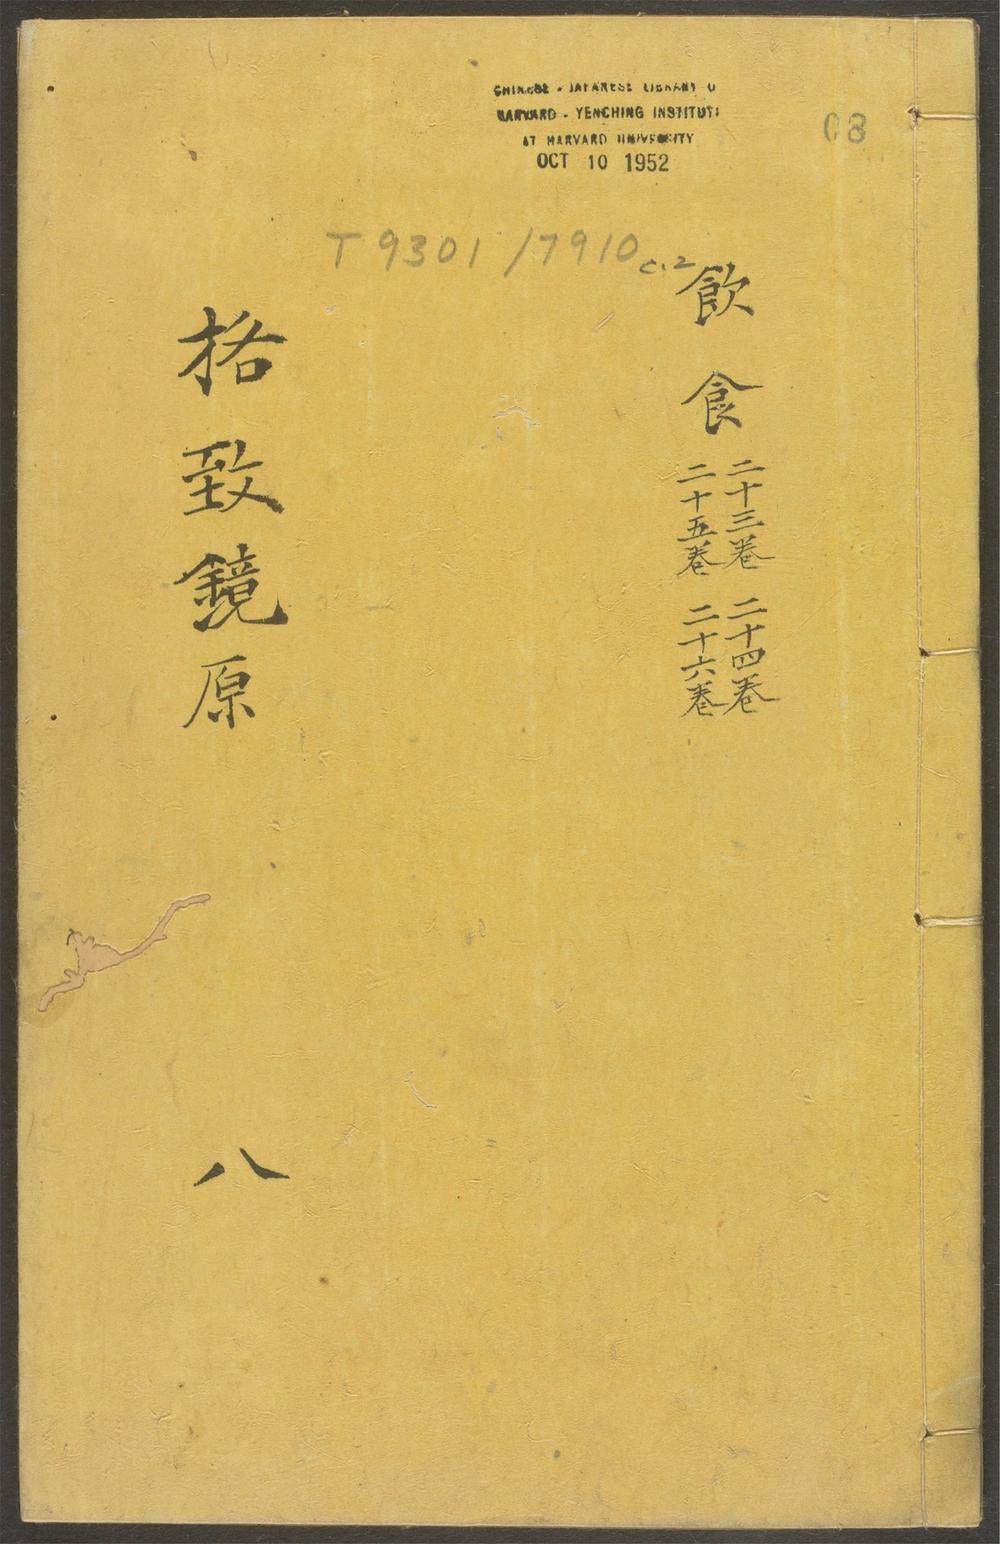 CHINESE - JAPANESE LIBRARY O
HARVARD - YENCHING INSTITUTE
AT HARVARD UNIVERSITY
OCT 10 1952
08
T 9301 /7910 c.2
飲食
二十三卷 二十四卷
二十五卷 二十六卷
格致鏡原
八